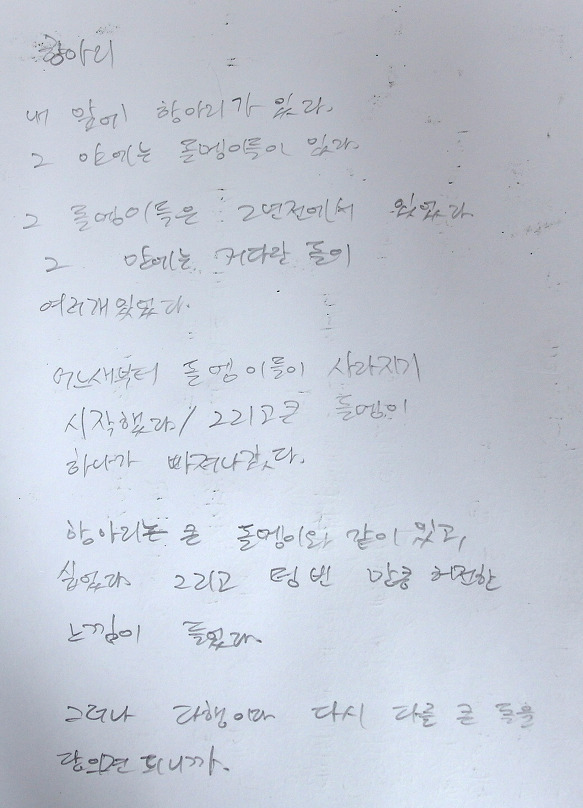 항아리
내 앞에 항아리가 있다.
그 안에는 돌멩이들이 있다.
그 돌멩이들은 2년전에서 왔었다
그 안에는 커다란 돌이
여러개 있었다.
어느새부터 돌멩이들이 사라지기
시작했다/ 그리고 큰 돌멩이
하나가 빠져나갔다.
항아리는 큰 돌멩이와 같이 있고,
싶었다 그리고 텅 빈 만큼 허전한
느낌이 들었다.
그러나 다행이다 다시 다른 큰 돌을
담으면 되니까.